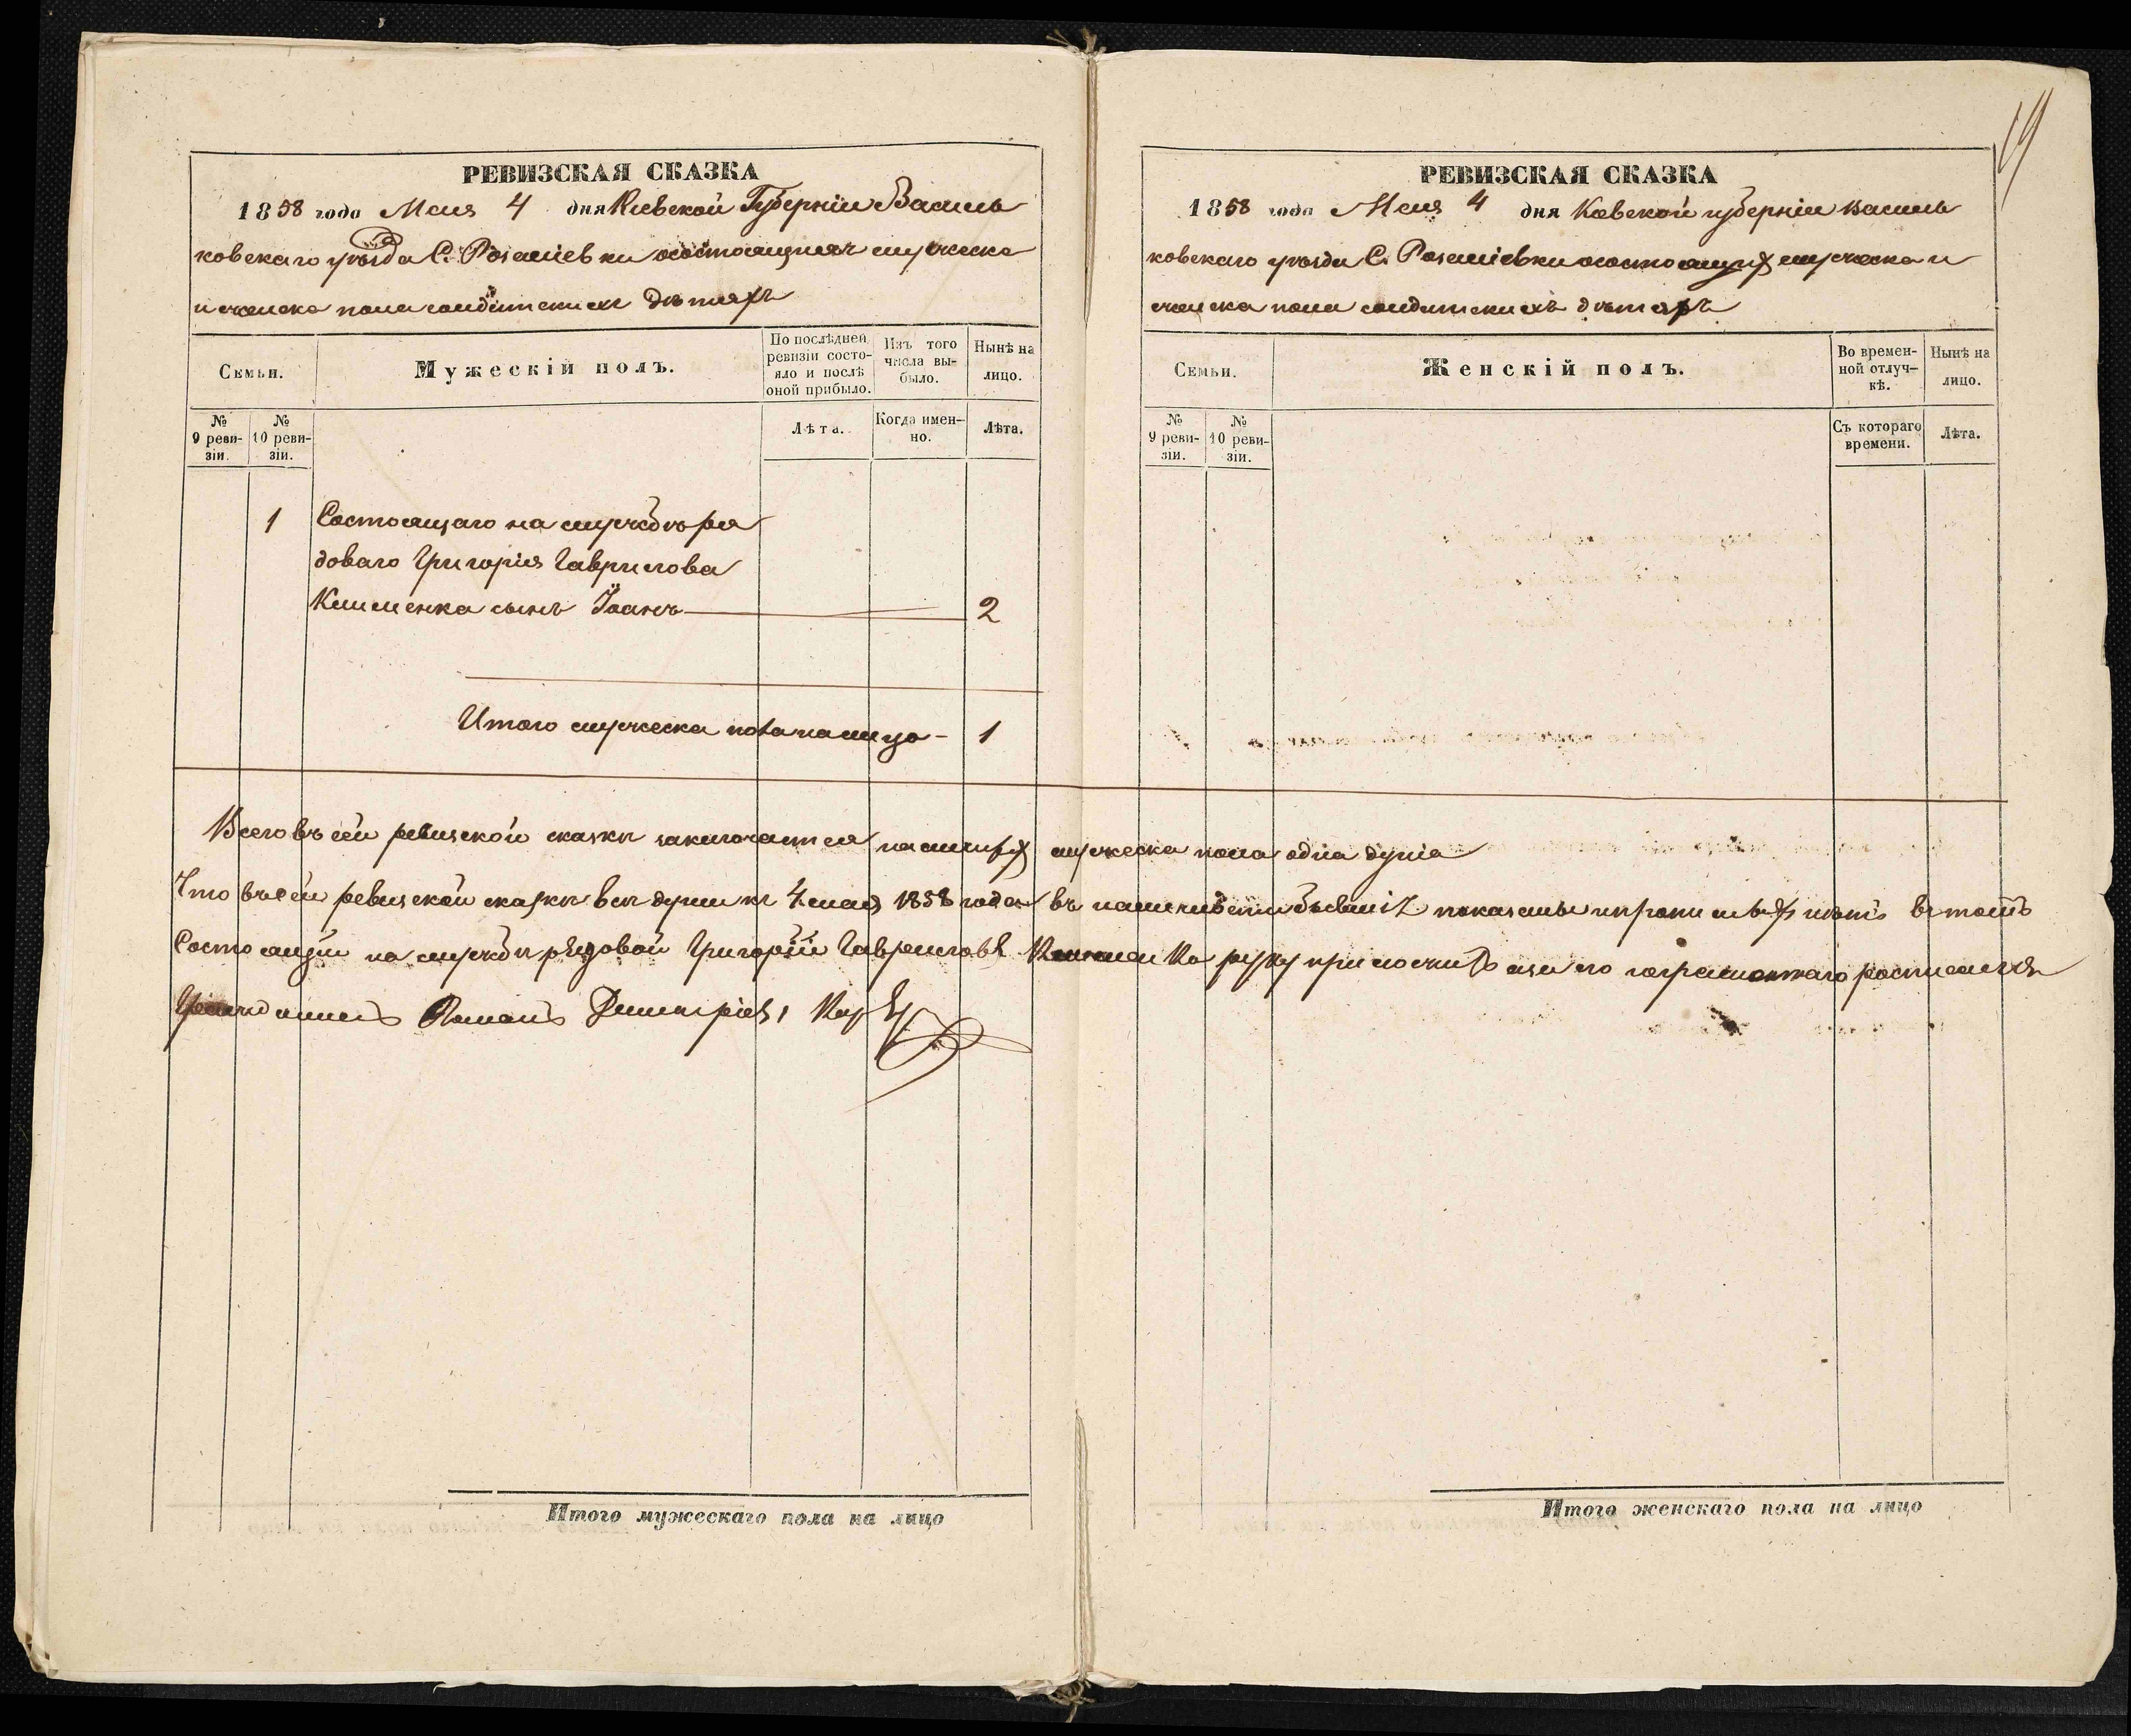 РЕВИЗСКАЯ СКАЗКА
1858 года Мая 4 дня Киевской Губерніи Василь
ковскаго уѣзда С. Розаліевки о состоящихъ мужеска
и женска пола солдатскихъ дѣтяхъ
Семьи.
Мужескій полъ.
По послѣдней ревизіи состояло и послѣ оной прибыло.
Изъ того числа выбыло.
Нынѣ на лицо.
№ 9 ревизіи.
№ 10 ревизіи.
Лѣта.
Когда именно.
Лѣта.
1 Состоящаго на службѣ ря
доваго Григорія Гаврилова
Клименка сынъ Іоанъ 2
Итого мужеска пола налицо - 1
РЕВИЗСКАЯ СКАЗКА
19
1858 года Мая 4 дня Киевской губерніи Василь
ковскаго уѣзда С. Розаліевки о состоящих мужеска и
женска пола солдатскихъ дѣтяхъ
Семьи.
Женскій полъ.
Во временной отлучкѣ.
Нынѣ на лицо.
№ 9 ревизіи.
№ 10 ревизіи.
Съ котораго времени.
Лѣта.
Всего въ сей ревизской сказки заключается мужеска пола одна душа
Что въ сей ревизской сказки вси души к 4 мая 1858 года въ показаны и нѣтъ в томъ
Состоящій на службѣ рядовой Григорій Гавриловъ Клименко руку приложилъ а за его неграмотнаго росписался
Романъ Димитріевъ
Итого мужескаго пола на лицо
Итого женскаго пола на лицо